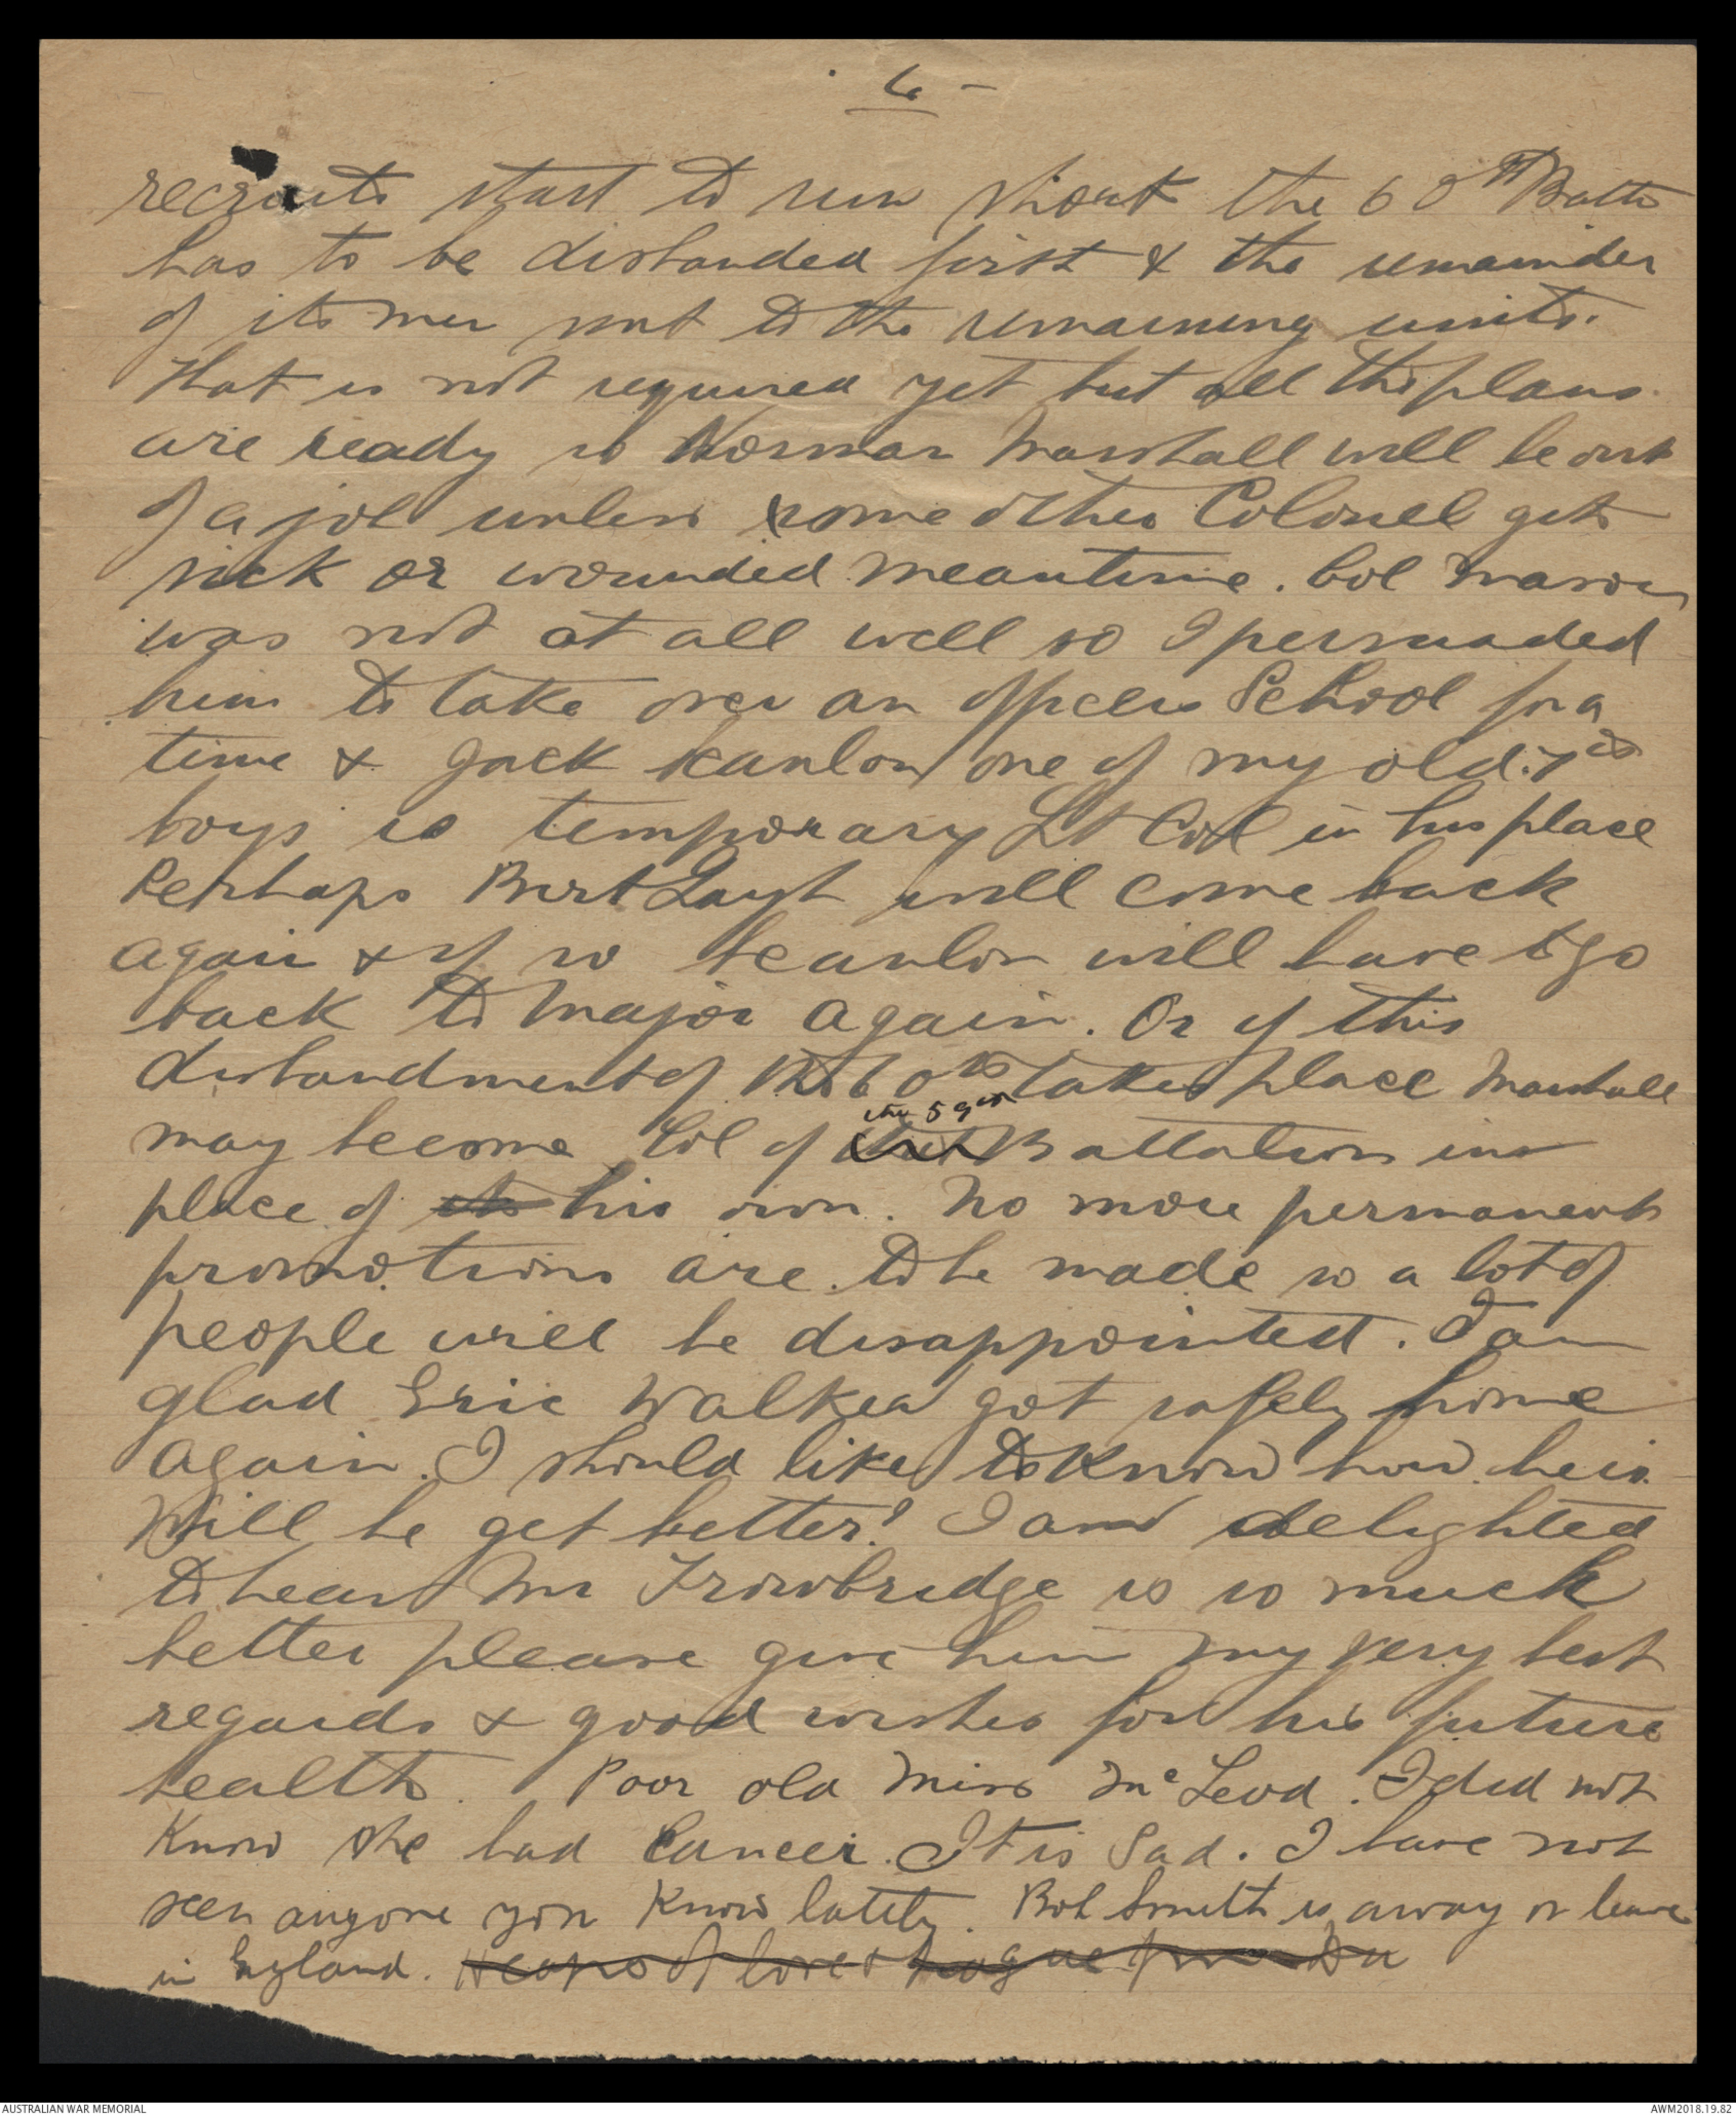 6 -
recruits start to run short the 60th Battn
has to be disbanded first & the remainder
of its men sent to the remaining units.
That is not required yet but all the plans
are ready so Norman Marshall will be out
of a job unless some other Colonel gets
sick or wounded meantime. Col Mason
was not at all well so I persuaded
him to take over an officers School for a
time & Jack Scanlon one of my old 7th
boys is temporary Lt Col in his place
Perhaps Bert Layh will come back
again & if so Scanlon will have to go
back to Major again. Or if this
disbandment of the 60th takes place Marshall
the 59th
may become Col of that Battalion in
place of its his own. No more permanent
promotions are to be made so a lot of
people will be disappointed. I am
glad Eric Walker got safely home
again. I should like to know how he is.
Will he get better? I am delighted
to hear Mr Trowbridge is so much
better please give him my very best
regards & good wishes for his future
health. Poor old Miss McLeod. I did not
know she had Cancer. It is sad. I have not
seen anyone you know lately. Bob Smith is away on leave
in England. Heaps of love & from Da
AUSTRALIAN WAR MEMORIAL
AWM2018.19.82